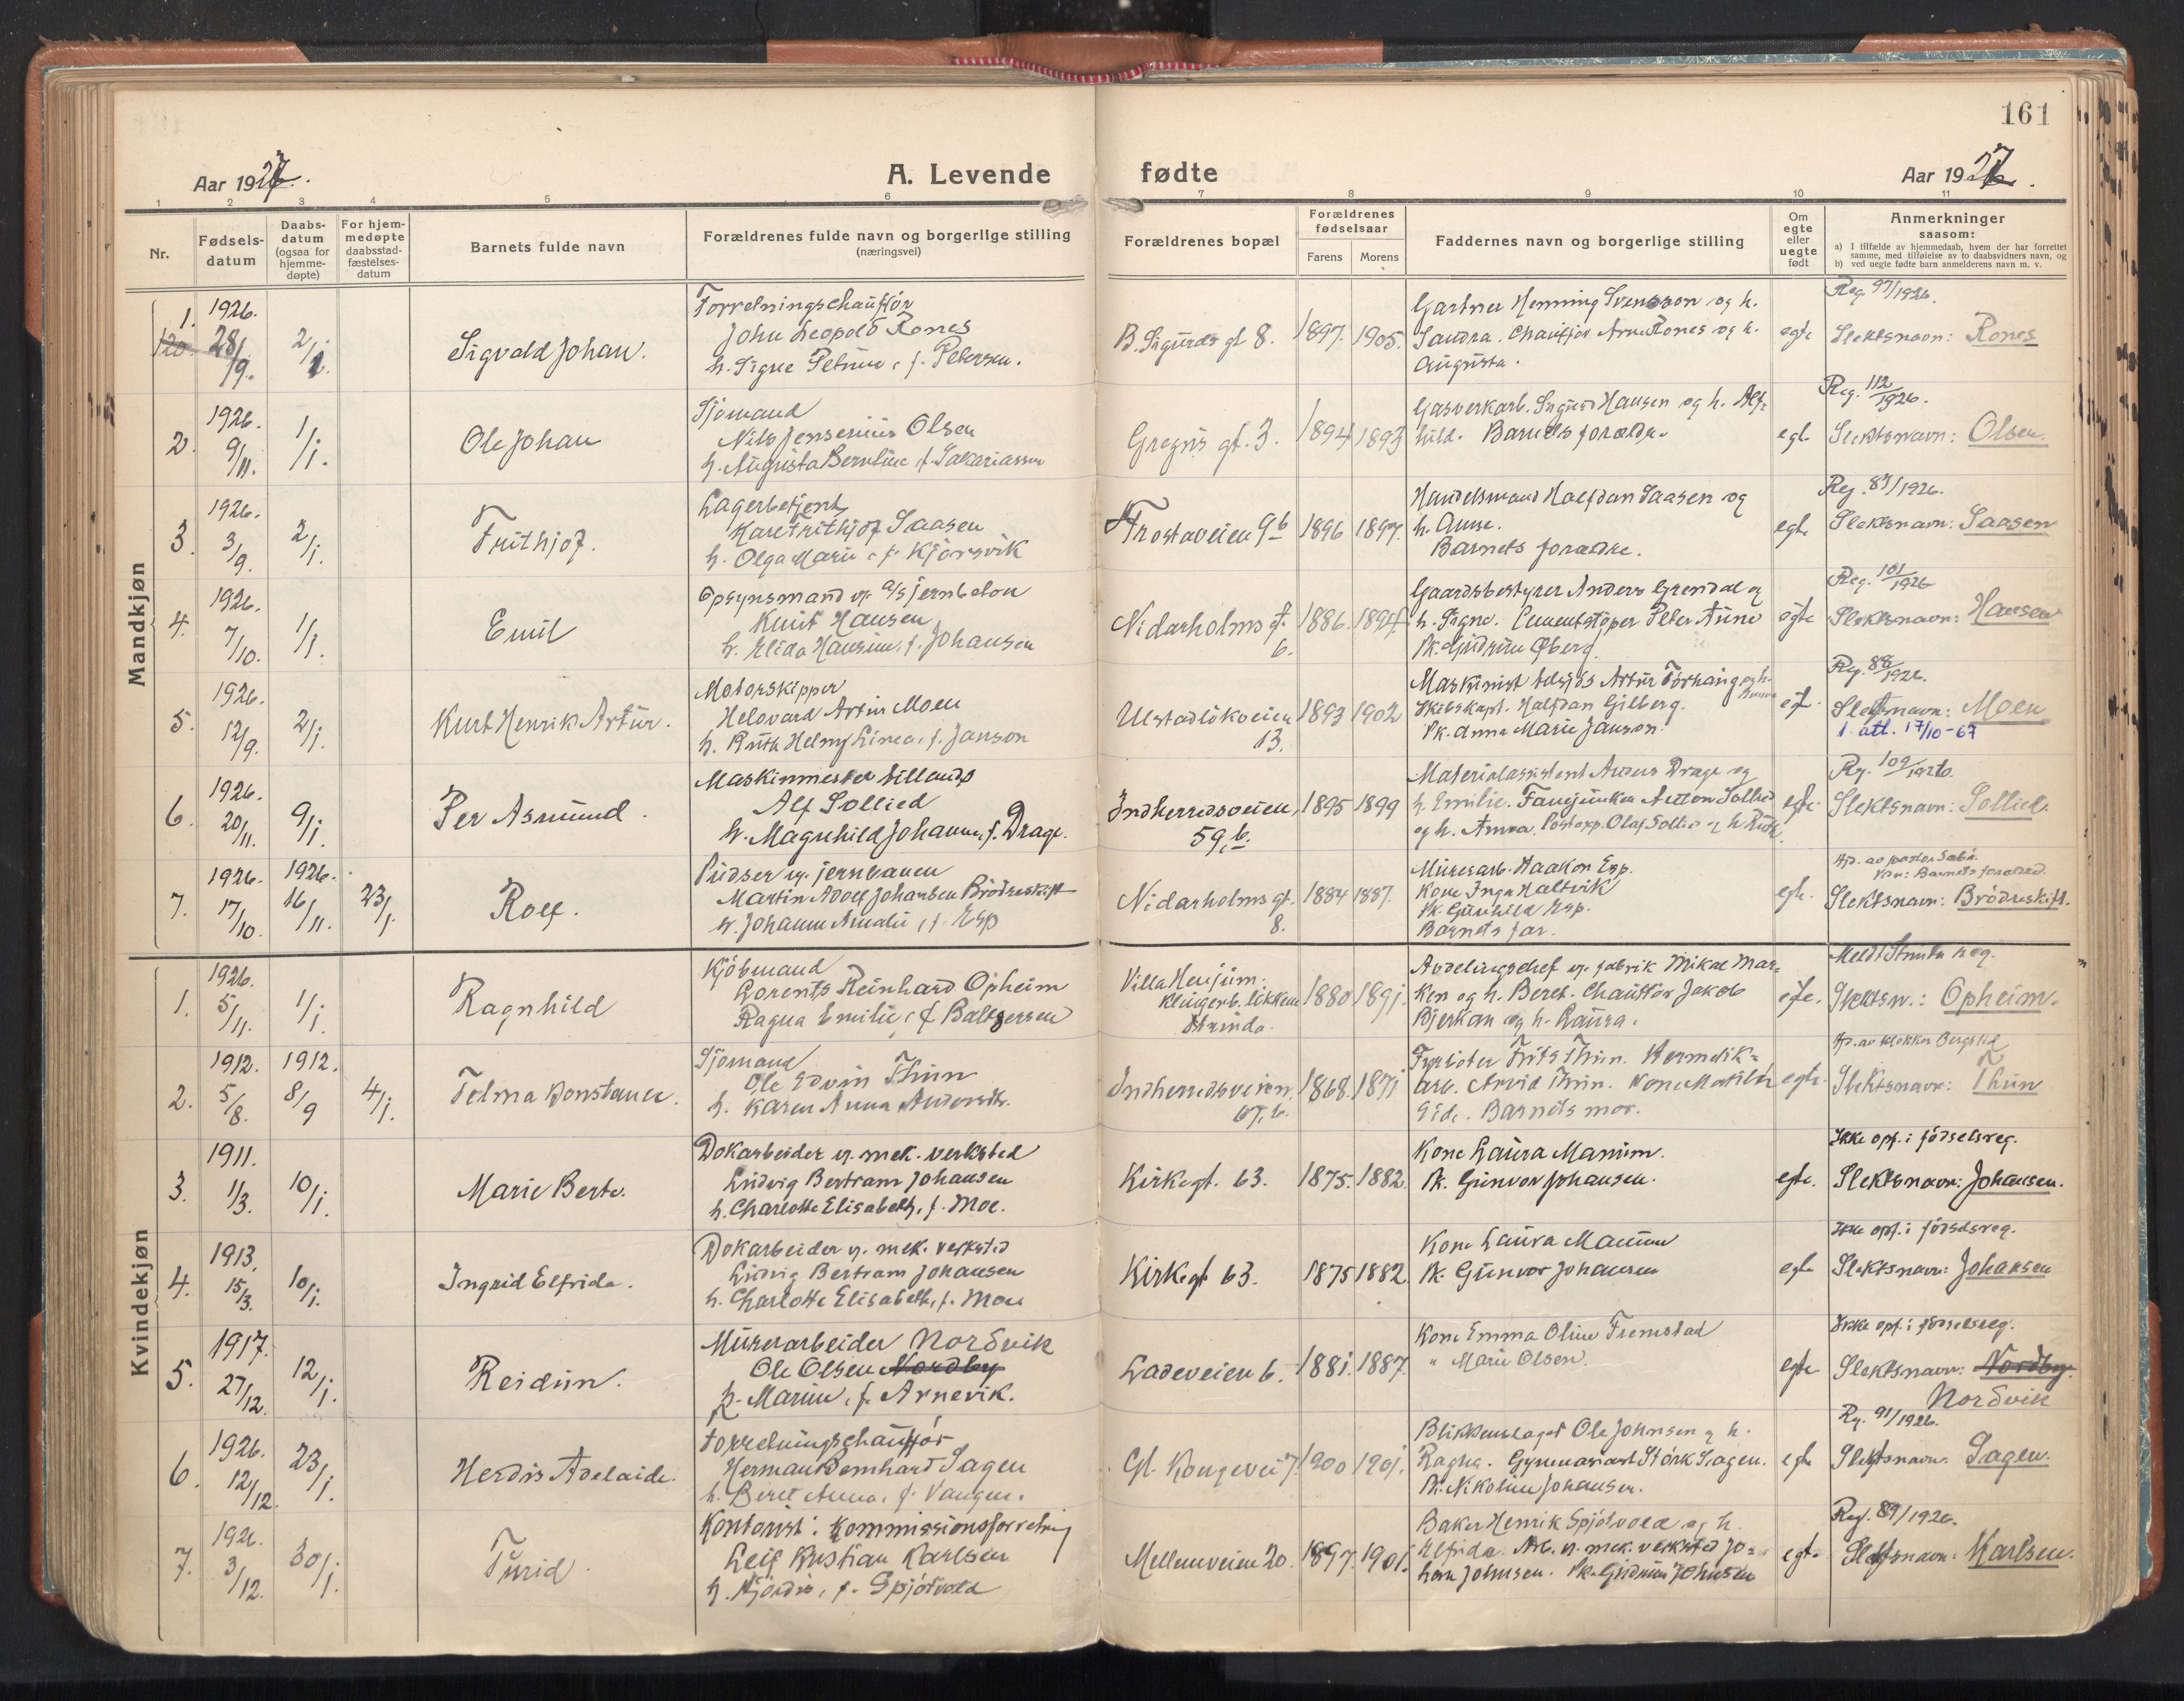 161
Aar 1927.
A. Levende
fødte
Aar 1927.
1 2 3 4 5 6 7 8 9 10 11
Nr.
Fødsels-
datum
Daabs-
datum
(ogsaa for
hjemme-
døpte)
For hjem-
medøpte
daabsstad-
fæstelses-
datum
Barnets fulde navn
Forældrenes fulde navn og borgerlige stilling
(næringsvei)
Forældrenes bopæl
Forældrenes
fødselsaar
Farens
Morens
Faddernes navn og borgerlige stilling
Om
egte
eller
uegte
født
Anmerkninger
saasom:
a) I tilfælde av hjemmedaab, hvem der har forrettet
samme, med tilføielse av to daabsvidners navn, og
b) ved uegte fødte barn anmelderens navn m. v.
Mandkjøn
1.
120
1926.
28/9.
2/1.
Sigvald Johan.
Forretningschauffør
John Leopold Rones
h. Signe Petrine, f. Petersen.
B. Sigurds gt 8.
1897.
1905.
Gartner Henning Svensson og h.
Sandra. Chauffør Arne Rones og h.
Augusta.
egte
Reg. 97/1926.
Slektsnavn: Rones
2.
1926.
9/11.
1/1.
Ole Johan
Sjømand
Nils Jensenius Olsen
h. Augusta Berntine, f. Sakariassen
Gregus gt. 3.
1894
1893
Gasverkarb. Sigurd Hansen og h. Alf-
hild. Barnets forældre.
egte
Reg. 112/1926.
Slektsnavn: Olsen.
3.
1926.
3/9.
2/1.
Frithjof.
Lagerbetjent
Kare Frithjof Saasen
h. Olga Marie, f. Kjørsvik
Frostaveien 9b
1896
1897.
Handelsmand Halfdan Saasen og
h. Anne.
Barnets forældre.
egte
Reg. 87/1926.
Slektsnavn: Saasen
4.
1926.
7/10.
1/1.
Emil
Opsynsmand v. A/S jernbeton
Knut Hansen
h. Elida Hansine, f. Johansen
Nidarholms gt.
6.
1886.
1894.
Gaardsbestyrer Anders Grendal og
h. Signe. Cementstøper Peter Aune
Pk. Gudrun Øberg.
egte
Reg. 101/1926
Slektsnavn: Hansen
5.
1926.
12/9.
2/1.
Kurt Henrik Artur.
Motorskipper
Helovard Artur Moen
h. Ruth Helny Linea, f. Janson
Ulstadløkveien
13.
1893
1902
Maskinist tilsjøs Artur Torhaug og h.
Skibskapt. Halfdan Gilberg.
Pk. Anna Marie Janson.
egte
Reg. 88/1926.
Slektsnavn: Moen
1 att. 17/10-67
6.
1926.
20/11.
9/1.
Per Asmund.
Maskinmester tillands
Alf Sollied
h. Magnhild Johanne, f. Drage.
Indherredsveien,
59,b.
1895
1899
Materialassistent Anders Drage og
h. Emilie. Fanejunker Anton Sollied
og h. Anna. Postexp. Olaf Sollied og h. Ruth
egte
Reg. 109/1926.
Slektsnavn: Sollied.
7.
1926.
17/10.
1926.
16/11.
23/1.
Rolf.
Pudser v. jernbanen
Martin Adolf Johansen Brödreskift
h. Johanne Amalie, f. Esp
Nidarholms gt.
8.
1884
1887.
Murerarb. Haakon Esp.
Kone Inga Haltvik
Pk. Gunhild Esp.
Barnets far.
egte.
Slektsnavn: Brödreskift.
Kvindekjøn
1.
1926.
5/11.
1/1.
Ragnhild
Kjöbmand
Lorents Reinhard Opheim
Ragna Emilie, f. Baltzersen
Villa Heujum.
Klingenb. lökken
Strinda.
1880
1891.
Avdelingschef v. fabrik Mikal Mar-
ken og h. Beret. Chauffør Jakob
Bjerkan og h. Laura.
egte.
Meldt Strinda reg.
Slektsn.: Opheim.
2.
1912.
5/8.
1912.
8/9
4/1.
Telma Konstance.
Sjømand
Ole Edvin Thun
h. Karen Anna Andersdtr.
Indherredsveien
67,b.
1868.
1871
Fyrbøter Frits Thun. Hermetik-
arb. Arvid Thun. Kone Matilde
Eide. Barnets mor.
egte.
Hjd. av klokker Bergslid
Slektsnavn: Thun
3.
1911.
1/3.
10/1.
Marie Berte.
Dokarbeider v. mek. verksted
Ludvig Bertram Johansen
h. Charlotte Elisabeth, f. Moe.
Kirkegt. 63.
1875.
1882.
Kone Laura Manum.
Pk. Gunvor Johansen.
egte.
Ikke opf. i fødselsreg.
Slektsnavn: Johansen.
4.
1913.
15/3.
10/1.
Ingrid Elfrida.
Dokarbeider v. mek. verksted
Ludvig Bertram Johansen
h. Charlotte Elisabeth, f. Moe
Kirkegt 63.
1875
1882.
Kone Laura Manum
Pk. Gunvor Johansen
egte
Ikke opf. i fødselsreg.
Slektsnavn: Johansen
5.
1917.
27/12.
12/1.
Reidun.
Murerarbeider Nordvik
Ole Olsen Nordby
h. Marine, f. Arnevik.
Ladeveien 6.
1881.
1887.
Kone Emma Oline Fremstad
" Marie Olsen.
egte
Ikke opf. i fødselsreg.
Slektsnavn: Nordby.
Nordvik
6.
1926.
12/12.
23/1.
Herdis Adelaide.
Forretningschauffør
Herman Bernhard Sagen
h. Beret Anna, f. Vangen.
Gl. Kongevei 7.
1900
1901.
Blikkenslager Ole Johnsen og h.
Ragna. Gymnasiast Størk Sagen.
Pk. Nikoline Johansen.
egte
Reg. 91/1926.
Slektsnavn: Sagen.
7.
1926.
3/12.
30/1.
Turid.
Kontorist i kommissionsforretning
Leif Kristian Karlsen
h. Hjørdis, f. Spjøtvold
Mellemveien 20.
1897.
1901.
Baker Henrik Spjøtvold og h.
Elfrida. Arb. v. mek. verksted Jo-
han Johnsen. Pk. Gudrun Johnsen
egte
Reg. 89/1926.
Slektsnavn: Karlsen.